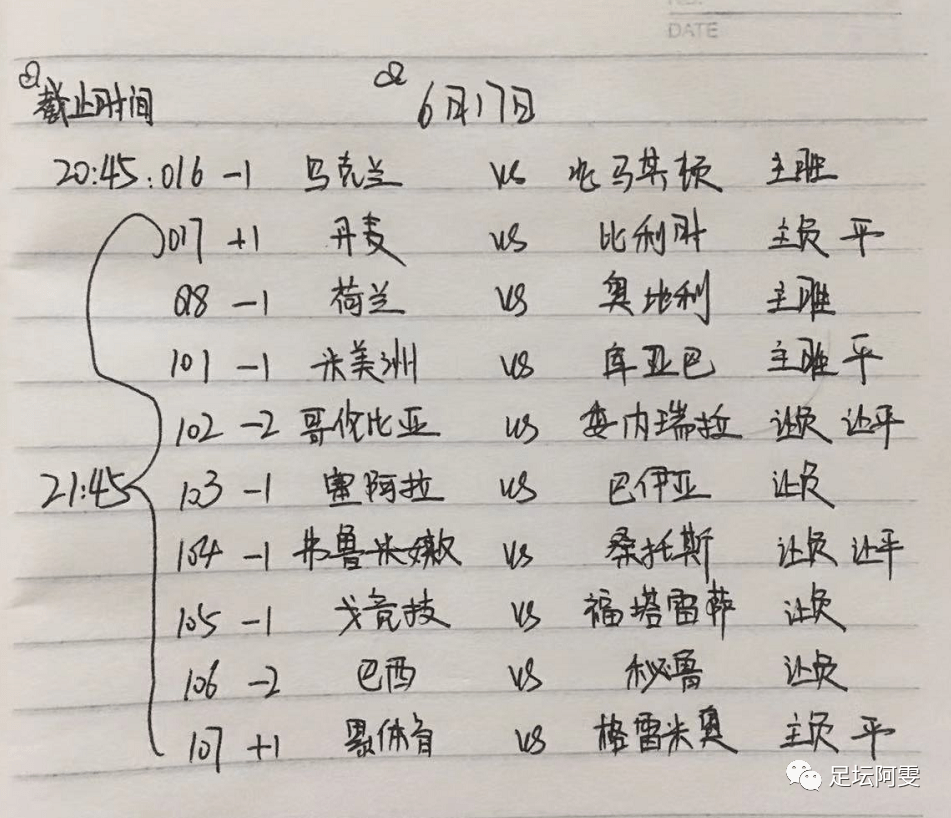 DATE
截止时间 6月17日
20:45:016 -1 乌克兰 vs 北马其顿 主胜
017 +1 丹麦 vs 比利时 主负 平
018 -1 荷兰 vs 奥地利 主胜
101 -1 米美洲 vs 库亚巴 主胜 平
102 -2 哥伦比亚 vs 委内瑞拉 让负 让平
21:45 103 -1 塞阿拉 vs 巴伊亚 让负
104 -1 弗鲁米嫩 vs 桑托斯 让负 让平
105 -1 戈竞技 vs 福塔雷萨 让负
106 -2 巴西 vs 秘鲁 让负
107 +1 累体育 vs 格雷米奥 主负 平
足坛阿雯